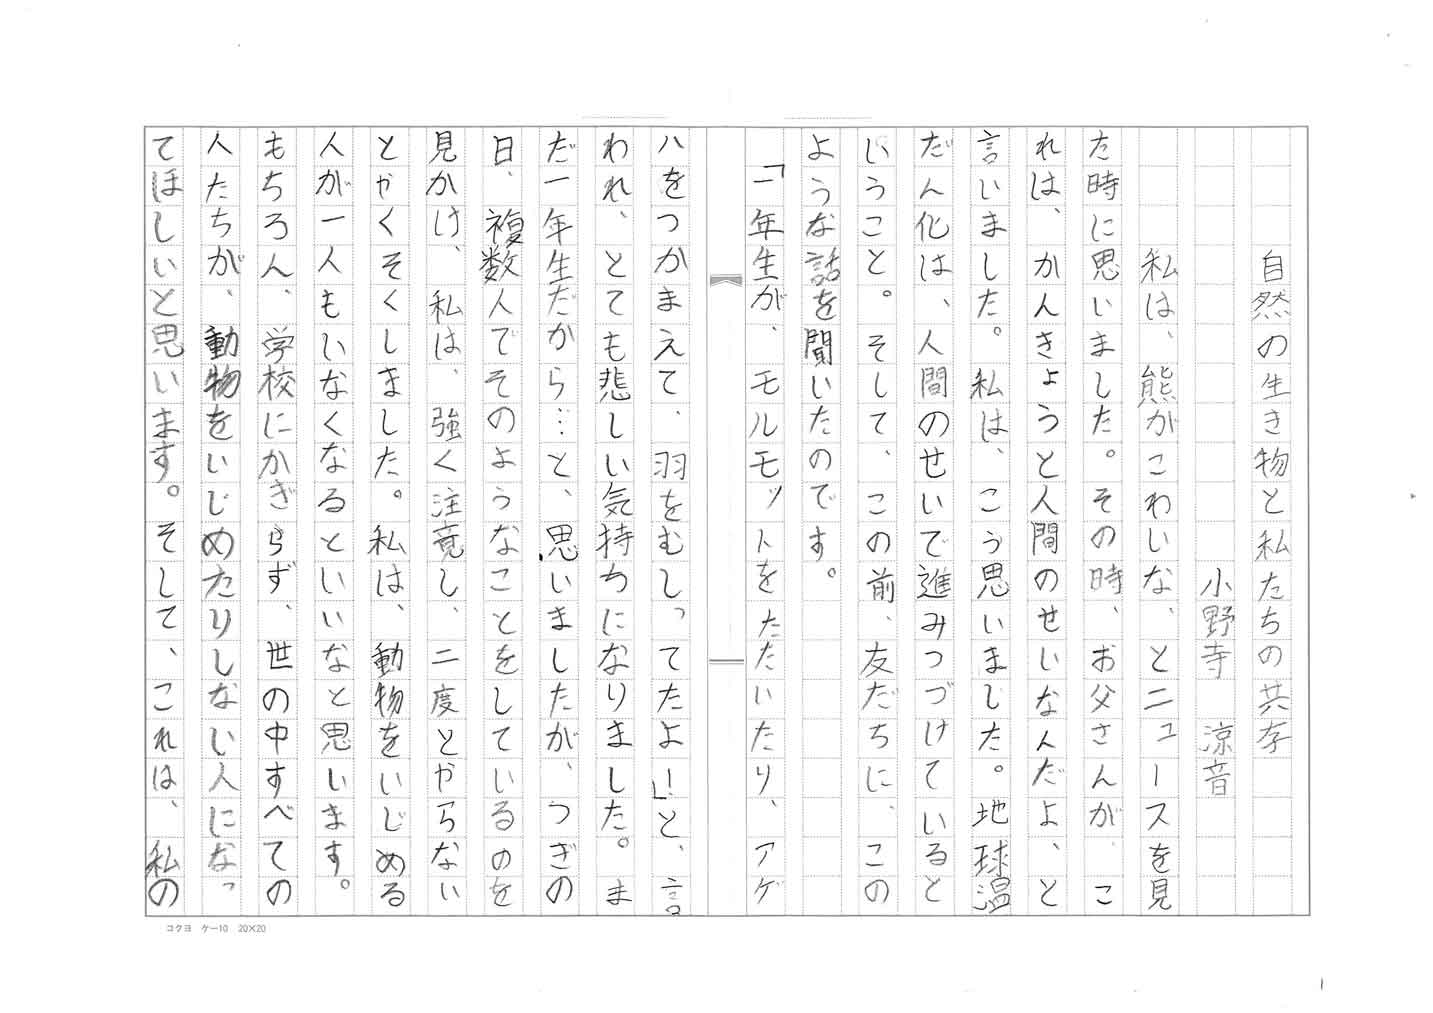 自然の生き物と私たちの共存
小野寺　涼音
私は、熊がこわいな、とニュースを見
た時に思いました。その時、お父さんが、こ
れは、かんきょうと人間のせいなんだよ、と
言いました。私は、こう思いました。地球温
だん化は、人間のせいで進みつづけていると
いうこと。そして、この前、友だちに、この
ような話を聞いたのです。
「一年生が、モルモットをたたいたり、アゲ
ハをつかまえて、羽をむしってたよ！」と、言
われ、とても悲しい気持ちになりました。ま
だ一年生だから…と、思いましたが、つぎの
日、複数人でそのようなことをしているのを
見かけ、私は、強く注意し、二度とやらない
とやくそくしました。私は、動物をいじめる
人が一人もいなくなるといいなと思います。
もちろん、学校にかぎらず、世の中すべての
人たちが、動物をいじめたりしない人になっ
てほしいと思います。そして、これは、私の
コクヨ　ケー10　20×20